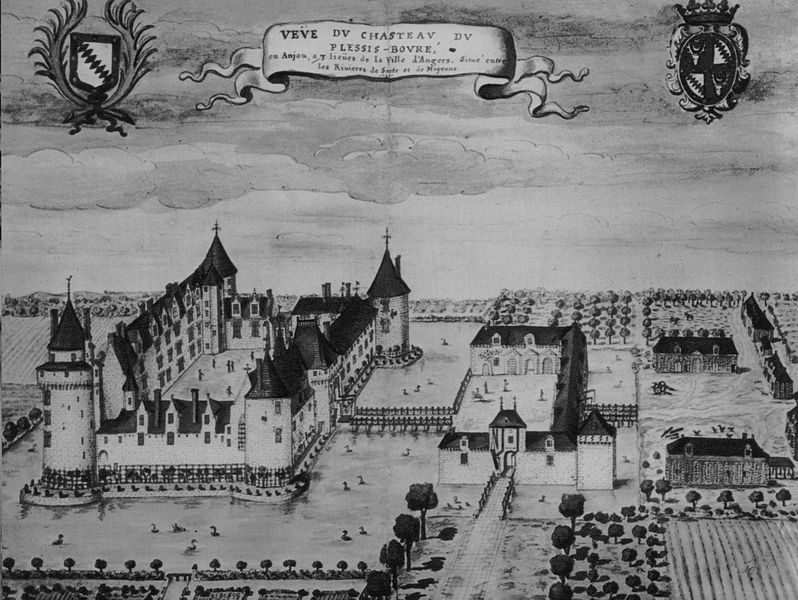 VEVE DV CHASTEAV DV
PLESSIS-BOVRÉ,
en Anjou, a 3 lieües de la Ville d'Angers. Situé entre
les Rivieres de Sarte et de Mayenne.